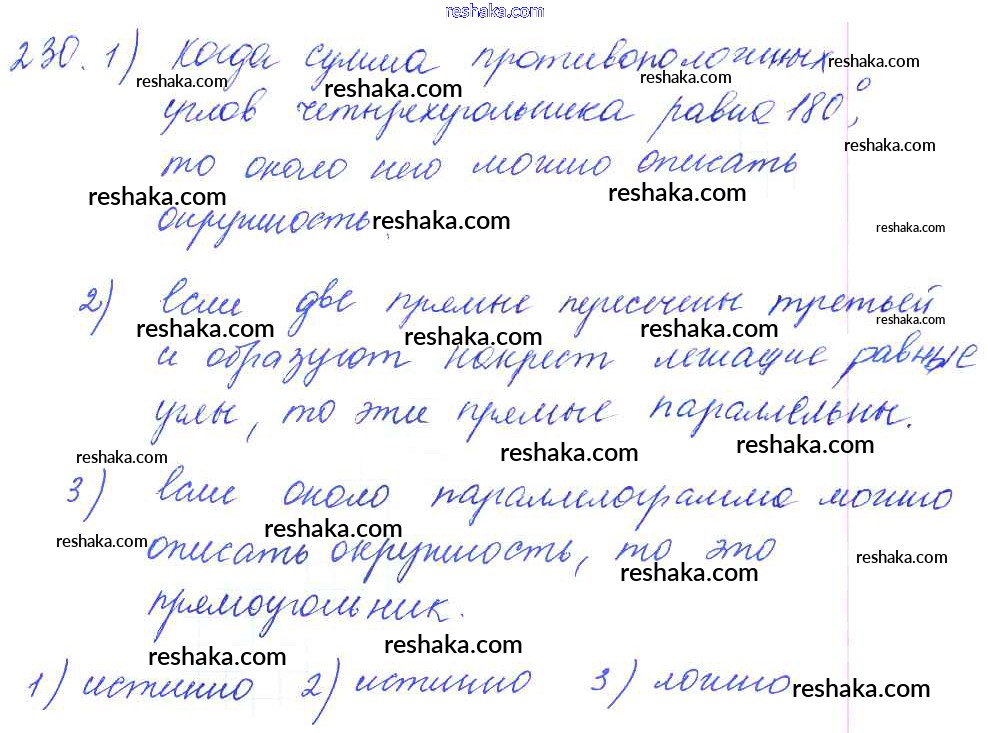 reshaka.com
230. 1) Когда сумма противоположных
reshaka.com reshaka.com reshaka.com reshaka.com
углов четырехугольника равна 180°,
reshaka.com
то около него можно описать
reshaka.com reshaka.com
окружность. reshaka.com reshaka.com
2) Если две прямые пересечены третьей
reshaka.com reshaka.com reshaka.com reshaka.com
и образуют накрест лежащие равные
углы, то эти прямые параллельны.
reshaka.com reshaka.com reshaka.com
3) Если около параллелограмма можно
reshaka.com reshaka.com
описать окружность, то это
reshaka.com reshaka.com
прямоугольник.
reshaka.com reshaka.com
1) истинно 2) истинно 3) ложно reshaka.com